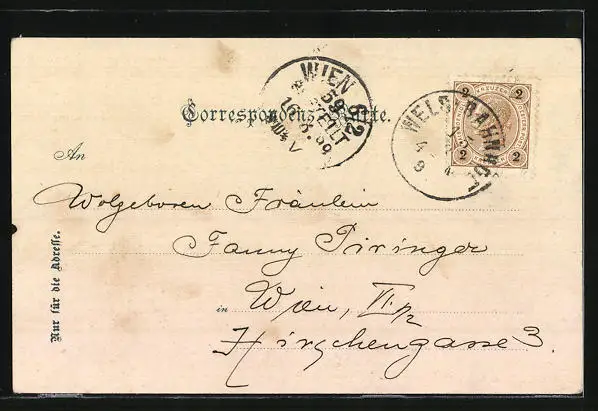 Correspondenz-Karte.
WIEN 6/2
59
BESTELLT
WELS BAHNHOF
2 KREUZER 2
2 2
An
Wolgeboren Fräulein
Fanny Piringer
in Wien, VI./2
Hirschengasse 3
Nur für die Adresse.